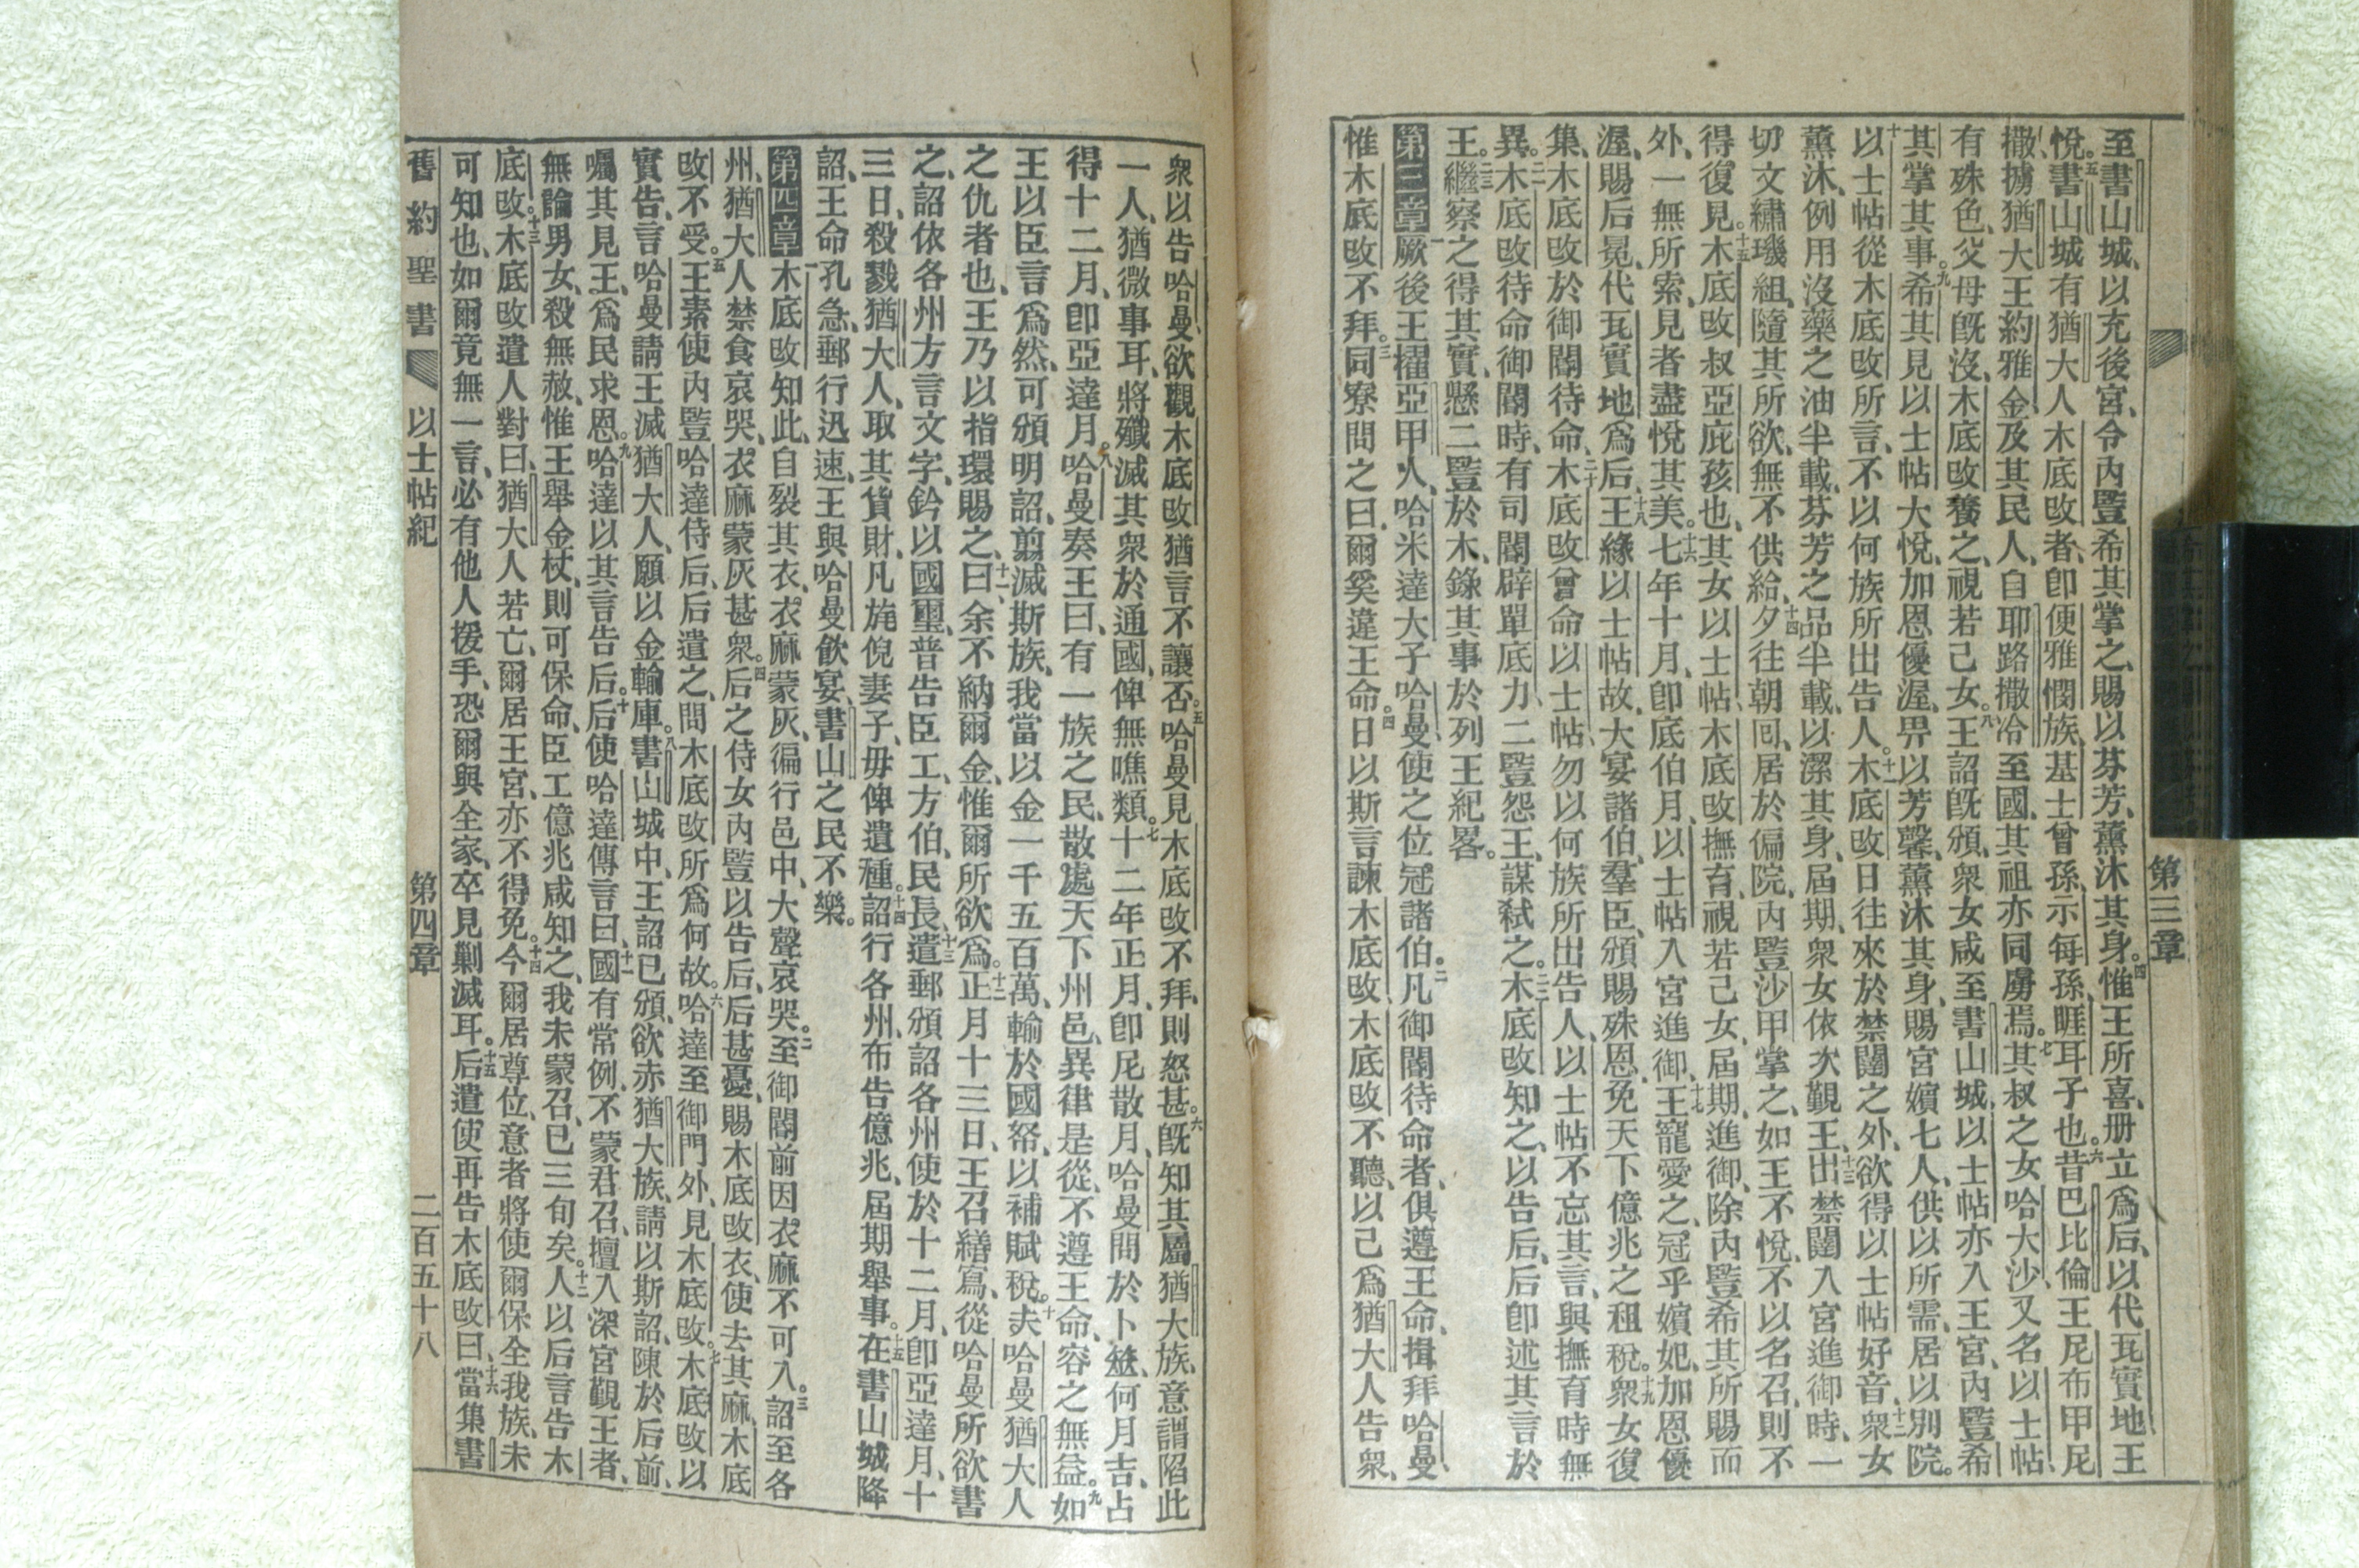 第三章
至書山城、以充後宮、令內豎希其掌之、賜以芬芳、薰沐其身。四惟王所喜、册立爲后、以代瓦實地王
悅。五書山城有猶大人木底改者、卽便雅憫族、基士曾孫、示每孫、睚耳子也。六昔巴比倫王尼布甲尼
撒、擄猶大王約雅金、及其民人、自耶路撒冷至國、其祖亦同虜焉。七其叔之女哈大沙、又名以士帖、
有殊色、父母旣沒、木底改養之、視若己女。八王詔旣頒、衆女咸至書山城、以士帖亦入王宮、內豎希
其掌其事。九希其見以士帖大悅、加恩優渥、畀以芳馨、薰沐其身、賜宮嬪七人、供以所需、居以別院。
十以士帖從木底改所言、不以何族所出告人。十一木底改日往來於禁闥之外、欲得以士帖好音、十二衆女
薰沐、例用沒藥之油半載、芬芳之品半載、以潔其身、屆期、衆女依次覲王、十三出禁闥入宮進御時、一
切文繡璣組、隨其所欲、無不供給、十四夕往朝回、居於偏院、內豎沙甲掌之、如王不悅、不以名召、則不
得復見。十五木底改叔亞庇孩也、其女以士帖、木底改撫育、視若己女、屆期、進御、除內豎希其所賜而
外、一無所索、見者盡悅其美。十六七年十月、卽底伯月、以士帖入宮進御、十七王寵愛之、冠乎嬪妃、加恩優
渥、賜后冕、代瓦實地爲后、十八王緣以士帖故、大宴諸伯、羣臣、頒賜殊恩、免天下億兆之租稅。十九衆女復
集、木底改於御闥待命、二十木底改曾命以士帖、勿以何族所出告人、以士帖不忘其言、與撫育時無
異。二一木底改待命御闥時、有司閽辟單底力二豎怨王、謀弒之。二二木底改知之、以告后、后卽述其言於
王。二三繼察之得其實、懸二豎於木、錄其事於列王紀畧。
第三章一厥後王擢亞甲人、哈米達大子哈曼、使之位冠諸伯、二凡御闥待命者、俱遵王命、揖拜哈曼、
惟木底改不拜。三同寮問之曰、爾奚違王命。四日以斯言諫木底改、木底改不聽、以己爲猶大人告衆、
衆以告哈曼、欲觀木底改猶言不讓否。五哈曼見木底改不拜、則怒甚。六旣知其屬猶大族、意謂陷此
一人、猶微事耳、將殲滅其衆於通國、俾無噍類。七十二年正月、卽尼散月、哈曼問於卜筮、何月吉、占
得十二月、卽亞達月。八哈曼奏王曰、有一族之民、散處天下州邑、異律是從、不遵王命、容之無益。九如
王以臣言爲然、可頒明詔、翦滅斯族、我當以金一千五百萬、輸於國帑、以補賦稅。十夫哈曼猶大人
之仇者也、王乃以指環賜之、十一曰、余不納爾金、惟爾所欲爲。十二正月十三日、王召繕寫、從哈曼所欲書
之、詔依各州方言文字、鈐以國璽、普告臣工、方伯、民長、十三遣郵頒詔各州、使於十二月、卽亞達月、十
三日、殺戮猶大人、取其貨財、凡旄倪妻子、毋俾遺種。十四詔行各州、布告億兆、屆期舉事。十五在書山城降
詔、王命孔急、郵行迅速、王與哈曼飲宴、書山之民不樂。
第四章一木底改知此、自裂其衣、衣麻蒙灰、徧行邑中、大聲哀哭。二至御闥前、因衣麻不可入。三詔至各
州、猶大人禁食哀哭、衣麻蒙灰甚衆。四后之侍女內豎以告后、后甚憂、賜木底改衣、使去其麻、木底
改不受。五王素使內豎哈達侍后、后遣之、問木底改所爲何故。六哈達至御門外、見木底改。七木底改以
實告、言哈曼請王滅猶大人、願以金輸庫。八書山城中、王詔已頒、欲赤猶大族、請以斯詔、陳於后前、
囑其見王、爲民求恩。九哈達以其言告后。十后使哈達傳言曰、十一國有常例、不蒙君召、擅入深宮覲王者、
無論男女、殺無赦、惟王舉金杖、則可保命、臣工億兆咸知之、我未蒙召、已三旬矣。十二人以后言告木
底改。十三木底改遣人對曰、猶大人若亡、爾居王宮、亦不得免、十四今爾居尊位、意者將使爾保全我族、未
可知也、如爾竟無一言、必有他人援手、恐爾與全家、卒見剿滅耳。十五后遣使再告木底改曰、十六當集書
舊約聖書 以士帖紀 第四章 二百五十八